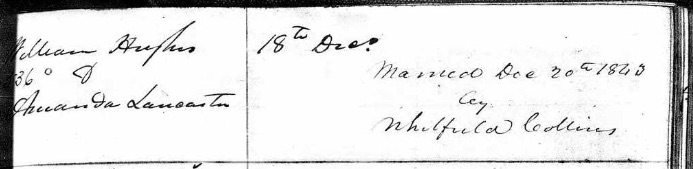 William Hughs
36° &
Amanda Lancaster
18th Dec.
Married Dec 20th 1843
by
Whitfield Collins